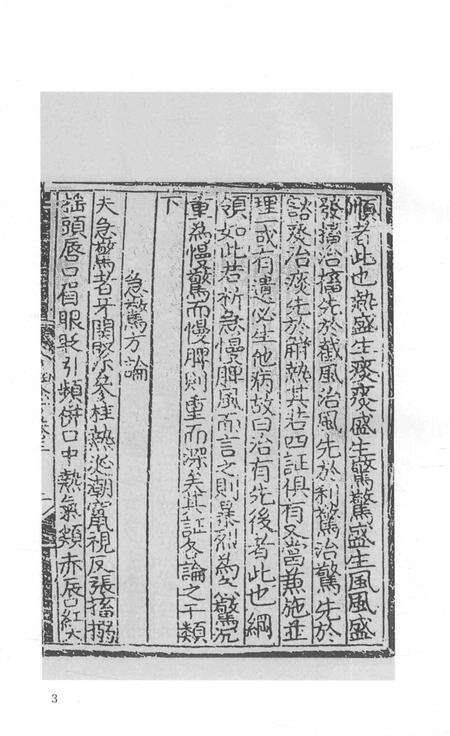 順者此也熱盛生痰痰盛生驚驚盛生風風盛
發搐治搐先於截風治風先於利驚治驚先於
諮痰治痰先於解熱其若四証俱有又當兼施並
理或有遺必生他病故曰治有先後者此也綱
領如此若析急慢脾風而言之則暴烈為急驚沉
重為慢驚而慢脾則重而深矣其証各論之于類
下
急驚方論
夫急驚者牙關緊急參柱熱涎潮竄視反張搐搦
搖頭唇口眉眼眨引頻併口中熱氣頰赤唇紅大
3